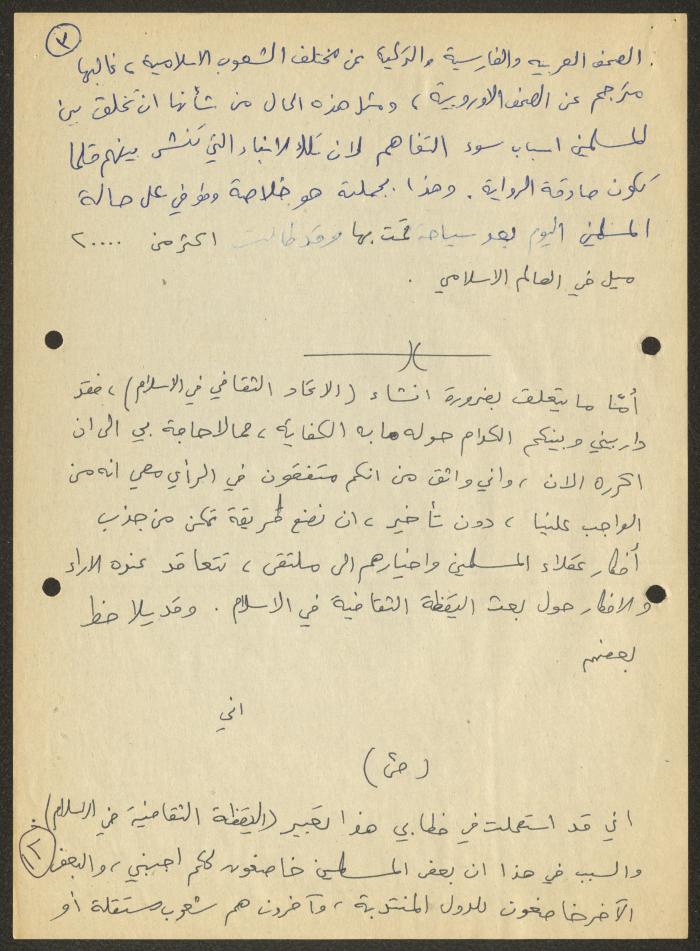 ٣
الصحف العربيه والفارسية والتركية عن مختلف الشعوب الاسلامية ، غالبها
مترجم عن الصحف الاوروبية ، ومثل هذه الحال من شأنها ان تخلق بين
المسلمين اسباب سوء التفاهم لان تلك الانباء التي تنشر بينهم قلما
تكون صادقة الرواية . وهذا بجملته هو خلاصة وقوفي على حالة
المسلمين اليوم بعد سياحة قمت بها وقد طالت اكثر من ٢٠٠٠٠
ميل في العالم الاسلامي .
أمّا ما يتعلق بضرورة انشاء (الاتحاد الثقافي في الاسلام) ، فقد
دار بيني وبينكم الكلام حوله ما به الكفاية ، مما لا حاجة بي الى ان
اكرره الان ، واني واثق من انكم متفقون في الرأي معي انه من
الواجب علينا ، دون تأخير ، ان نضع طريقة تمكن من جذب
أفكار عقلاء المسلمين واخيارهم الى ملتقى ، تتعاقد عنده الاراء
والافكار حول بعث اليقظة الثقافية في الاسلام . وقد يلاحظ
بعضهم
اني
(حش)
اني قد استعملت في خطابي هذا تعبير (اليقظة الثقافية في الاسلام) .
٢
والسبب في هذا ان بعض المسلمين خاضعون لحكم اجنبي ، والبعض
الآخر خاضعون للدول المنتدبة ، وآخرون هم شعوب مستقلة أو